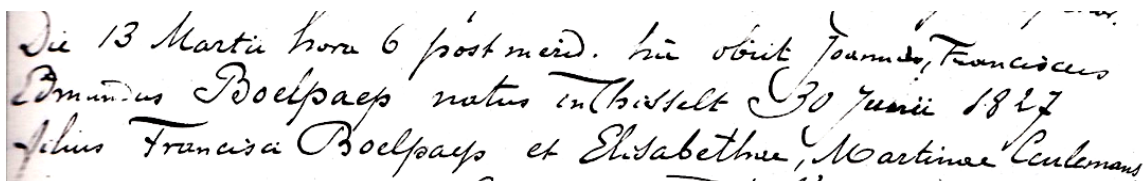 Die 13 Martii hora 6 post merid. hic obiit Joannes, Franciscus
Edmundus Boelpaep natus in Thisselt 30 Junii 1827
filius Francisci Boelpaep et Elisabethae, Martinae Ceulemans